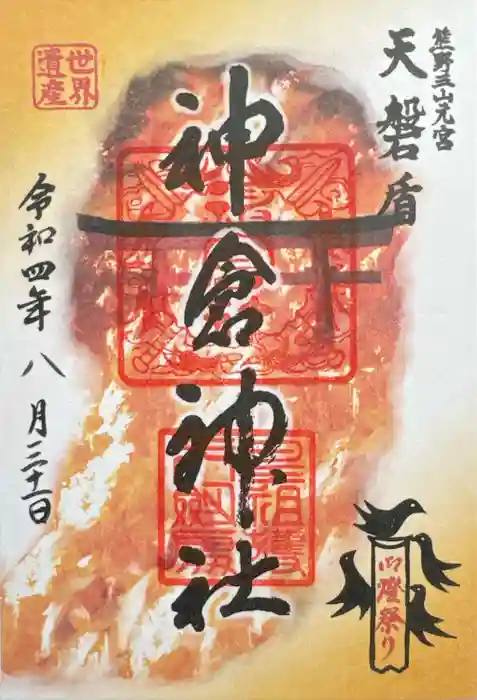 熊野三山元宮
天磐盾
世界
遺産
神倉神社
令和四年八月三十一日
御燈祭り